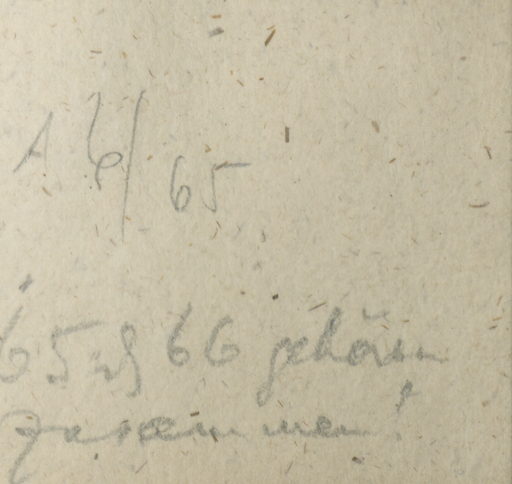 A 6/ 65
65 u 66 gehören
zusammen!